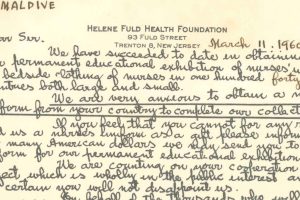 MALDIVE
HELENE FULD HEALTH FOUNDATION
93 FULD STREET
TRENTON 8, NEW JERSEY
March 11, 196
Sir:
We have succeeded to date in obtaining
permanent educational exhibition of nurses'
bedside clothing of nurses in one hundred forty
both large and small.
We are very anxious to obtain a
form from your country to complete our collect
If you feel that you cannot for any
us a nurse's uniform as a gift, please inform
many American dollars we may send you to
form for our permanent educational exhibition
We are counting on your cooperation
ject which is wholly in the public interest a
certain you will not disappoint us.
behalf of the thousands who will